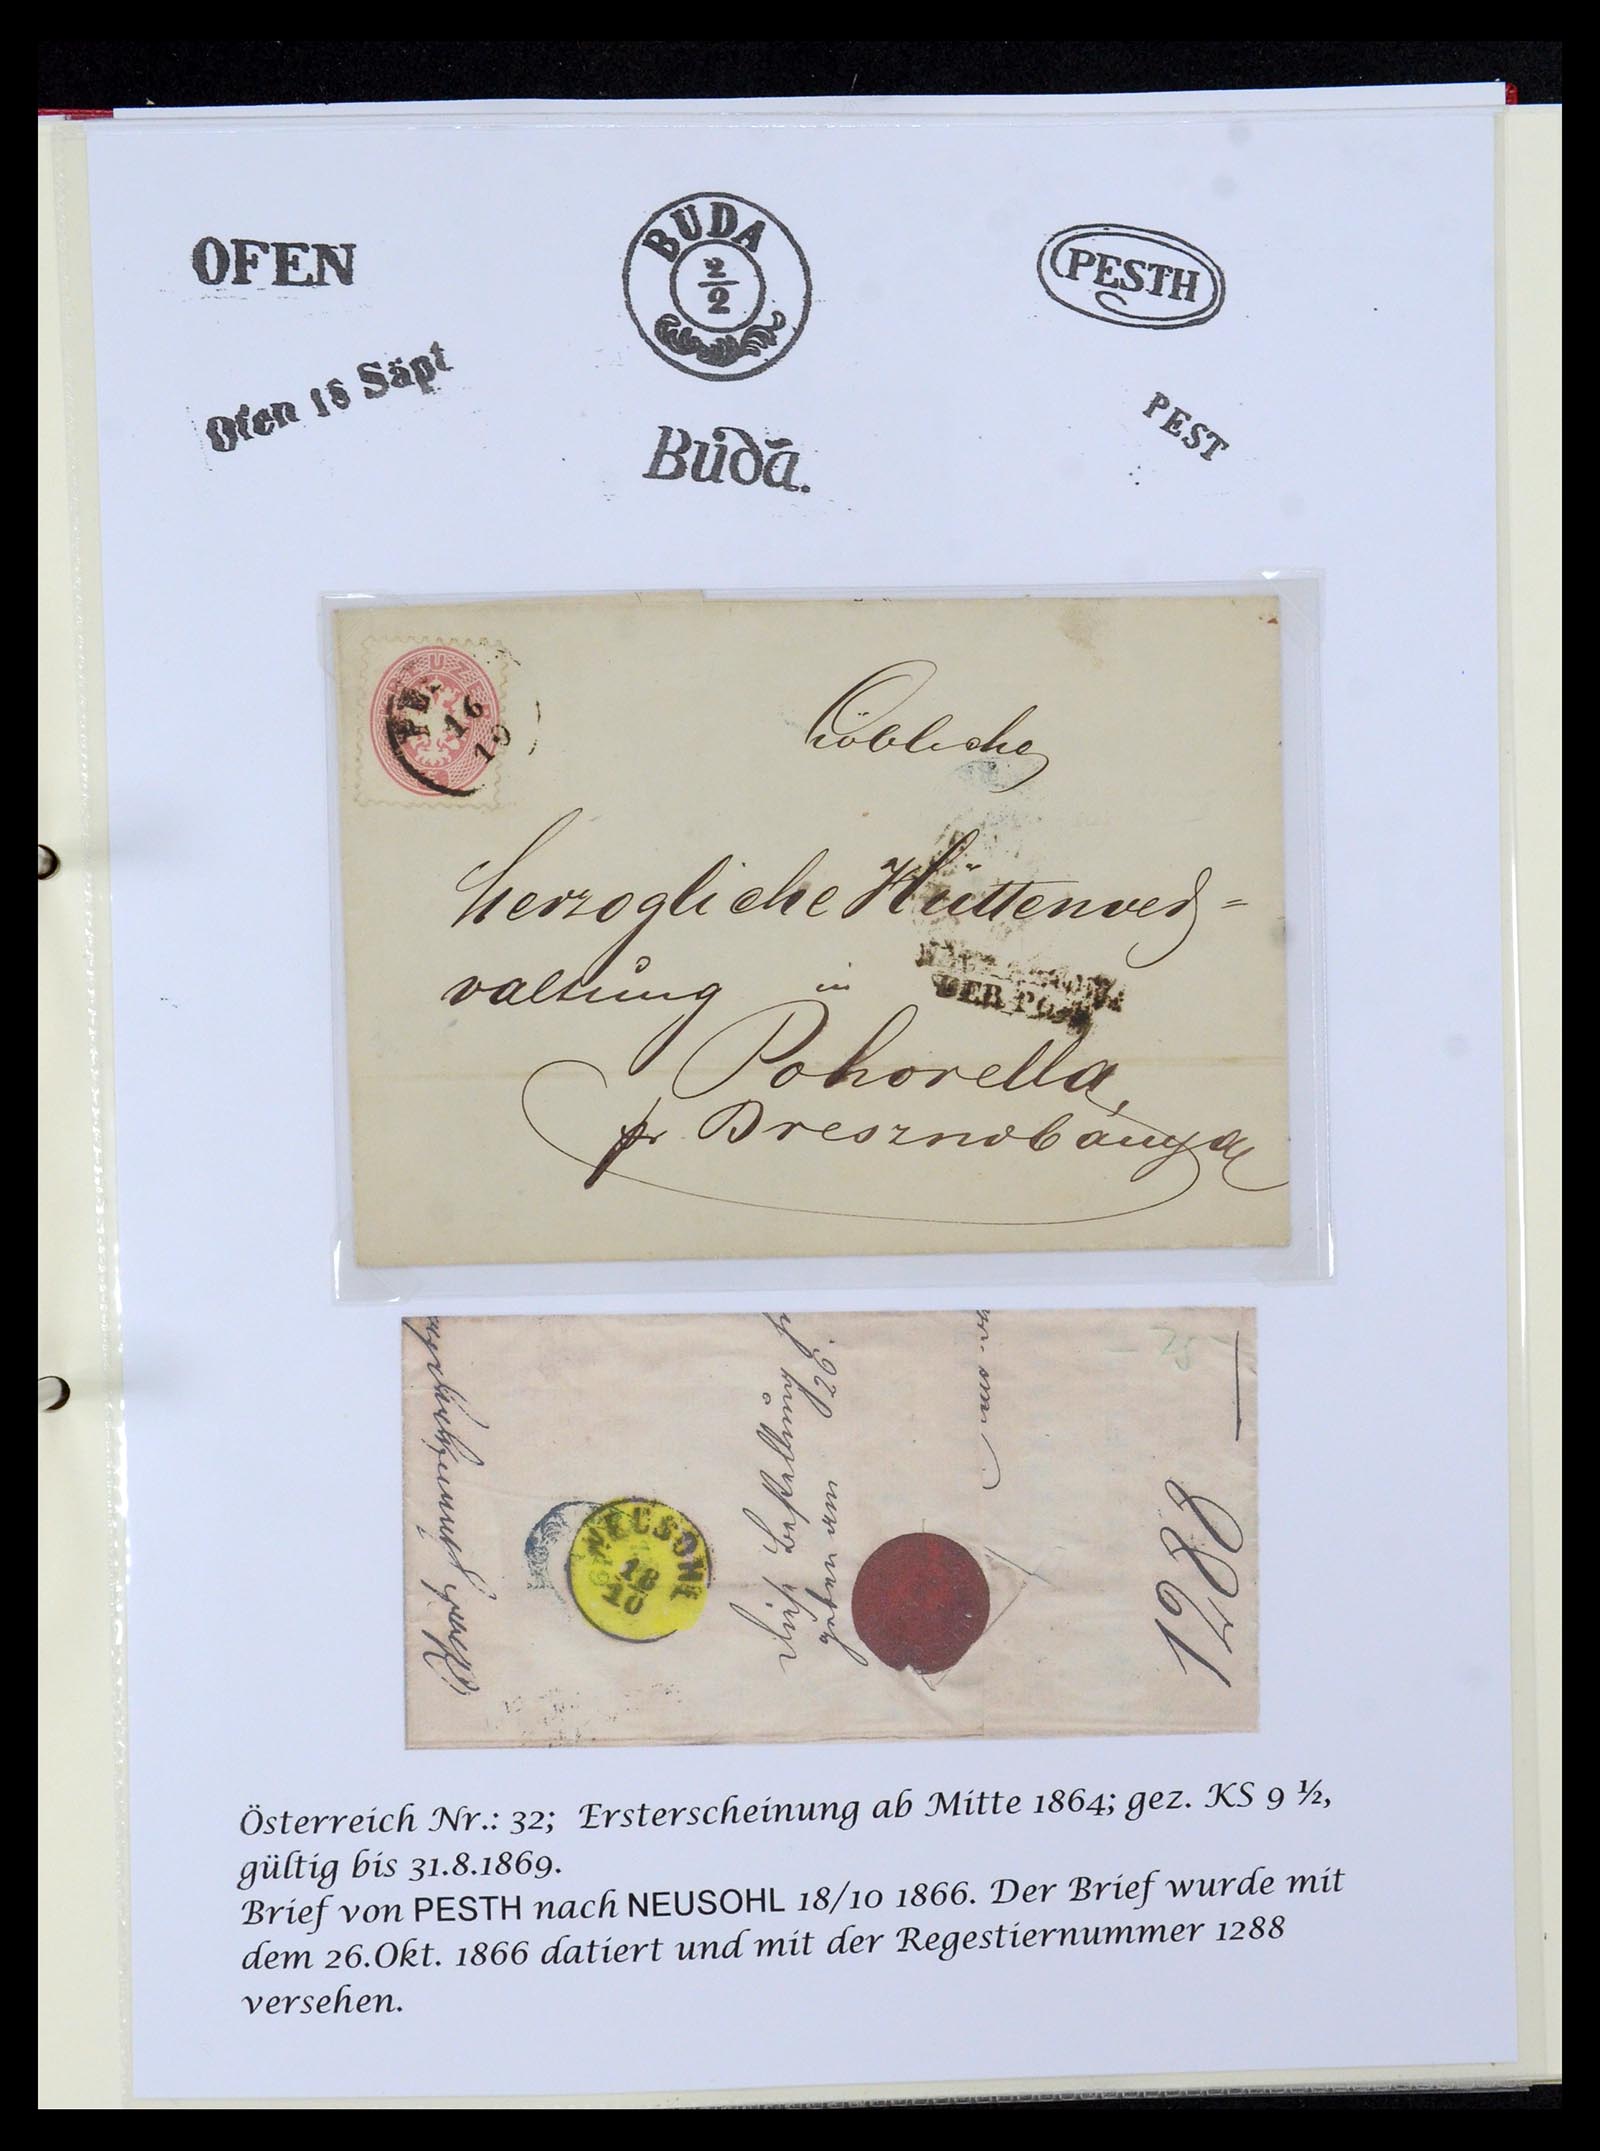 OFEN
BUDA
2
2
PESTH
Ofen 18 Säpt
Budā.
PEST
16
10
Löbliche
Herzogliche Hüttenver=
waltung in
DER POST
Pohorella
pr Bresznobánya
26.
NEUSOHL
18
10
1288
Österreich Nr.: 32; Ersterscheinung ab Mitte 1864; gez. KS 9 ½,
gültig bis 31.8.1869.
Brief von PESTH nach NEUSOHL 18/10 1866. Der Brief wurde mit
dem 26.Okt. 1866 datiert und mit der Regestiernummer 1288
versehen.